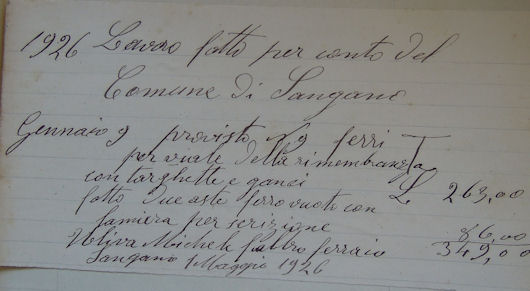 1926 Lavoro fatto per conto del
Comune di Sangano
Gennaio 9 provisto N 9 ferri T
per viale della rimembranza
con targhette e ganci L 263,00
fatto due aste ferro vuoto con
lamiera per iscrizione 86,00
Michele fabbro ferraio 349,00
Sangano 1 Maggio 1926